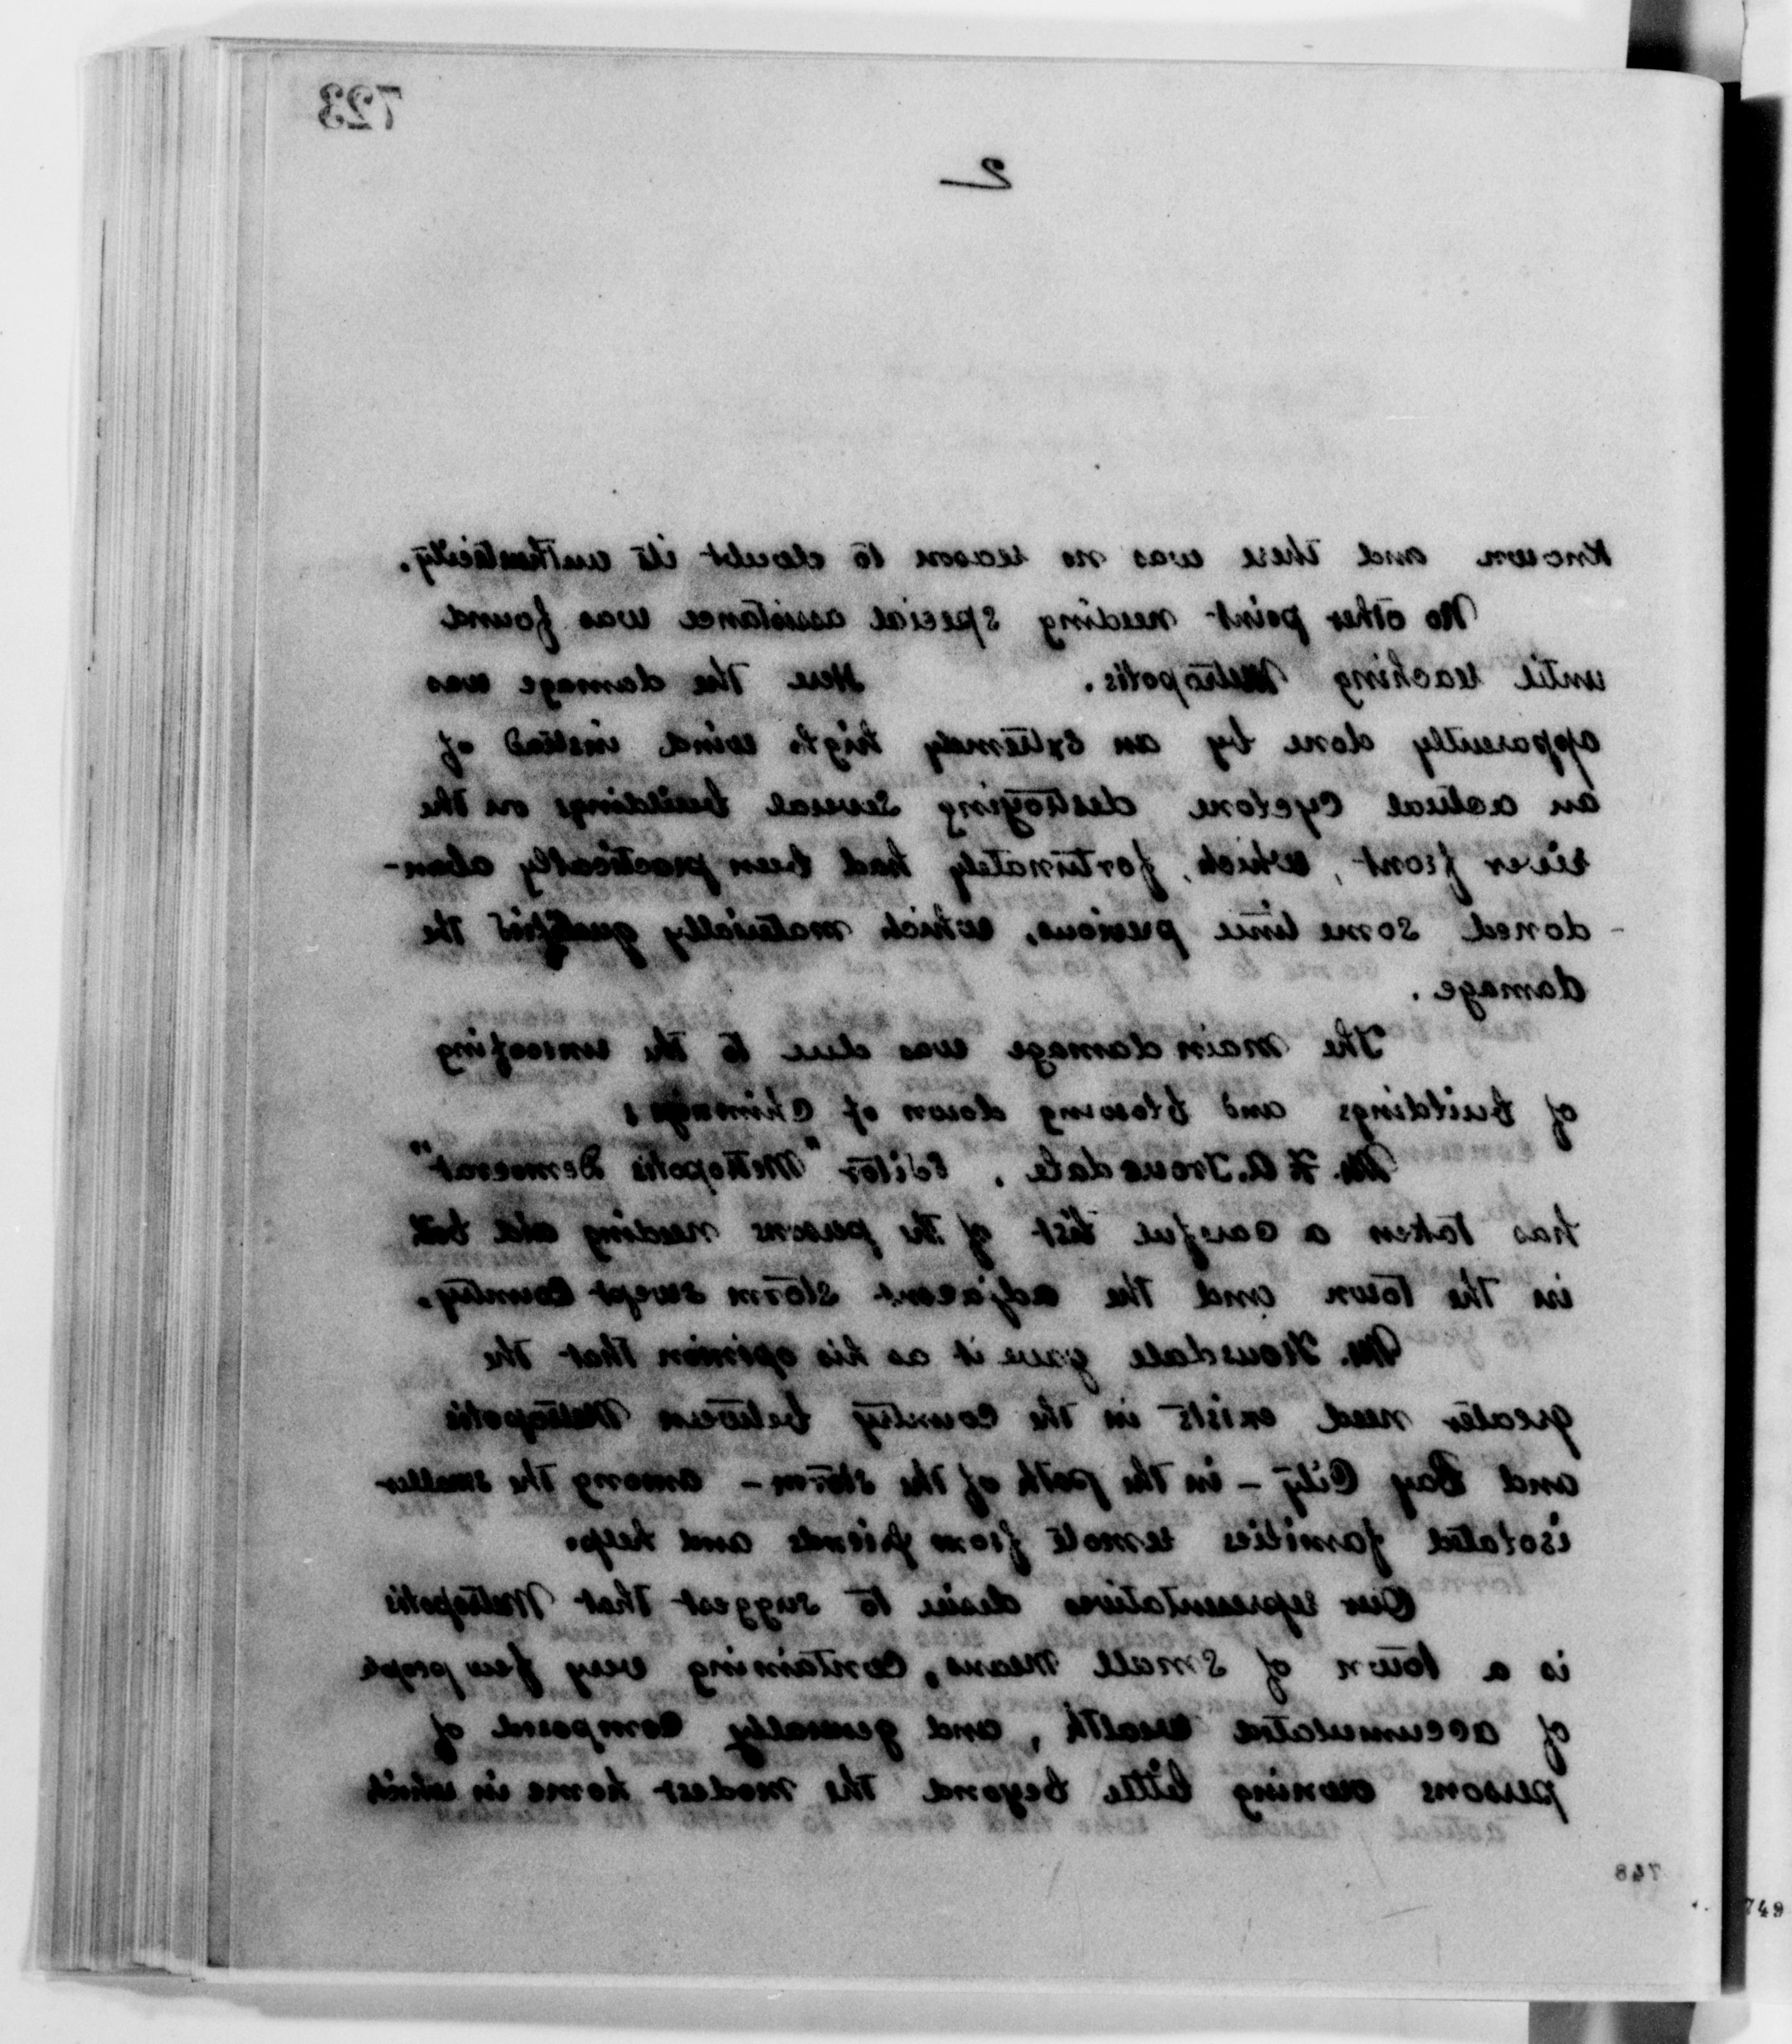 723
2
Known and there was no reason to doubt its authenticity.
No other point needing special assistance was found
until reaching Metropolis. Here the damage was
apparently done by an extremely high wind instead of
an actual cyclone destroying several buildings on the
river front, which, fortunately had been practically aban-
-doned some time previous, which materially qualifies the
damage.
The main damage was due to the unroofing
of buildings and blowing down of chimneys;
Mr. F. A. Trousdale, Editor "Metropolis Democrat"
has taken a careful list of the persons needing aid both
in the town and the adjacent storm swept country.
Mr. Trousdale gave it as his opinion that the
greater need exists in the country between Metropolis
and Bay City – in the path of the storm – among the smaller
isolated families remote from friends and help.
Our representatives desire to suggest that Metropolis
is a town of small means, containing very few people
of accumulated wealth, and generally composed of
persons owning little beyond the modest home in which
748
749